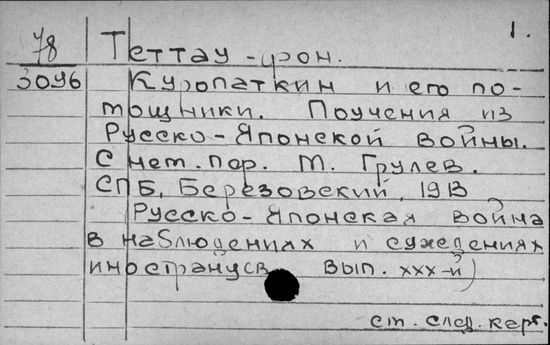 1.
78 Теттау - фон.
3096 Куропаткин и его по-
мощники. Поучения из
Русско-Японской войны.
С нем. пер. М. Грулев.
СПБ, Березовский, 1913
Русско-Японская война
в наблюдениях и суждениях
иностранцев вып. XXX-й)
см. след. карт.